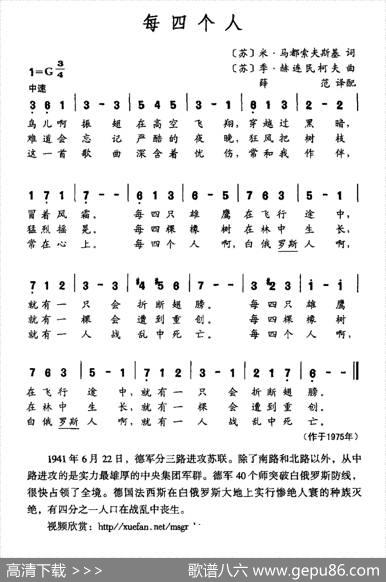 每四个人
〔苏〕米·马都索夫斯基 词
1=G 3/4 〔苏〕季·赫连民柯夫 曲
中速 薛 范 译配
鸟儿啊振翅在高空飞翔,穿越过黑暗,
难道会忘记严酷的夜晚,狂风把树枝
这一首歌曲深含着忧伤,常和我作伴,
1 7 1 | 7 - - | 6 1 3 | 6 - 5 | 7 6 3 | 5 - 1 |
冒着风霜。每四只雄鹰在飞行途中,
猛烈摇晃。每四棵橡树在林中生长,
常在心上。每四个人啊,白俄罗斯人啊,
就有一只会折断翅膀。每四只雄鹰
就有一棵会遭到重创。每四棵橡树
就有一人战乱中死亡。每四个人啊,
在飞行途中,就有一只会折断翅膀。
在林中生长,就有一棵会遭到重创。
白俄罗斯人啊,就有一人战乱中死亡。
(作于1975年)
1941年6月22日,德军分三路进攻苏联。除了南路和北路以外,从中
路进攻的是实力最雄厚的中央集团军群。德军40个师突破白俄罗斯防线,
很快占领了全境。德国法西斯在白俄罗斯大地上实行惨绝人寰的种族灭
绝,有四分之一人口在战乱中丧生。
视频欣赏:http//xuefan.net/msgr
高清下载 >>> 歌谱八六 www.gepu86.com